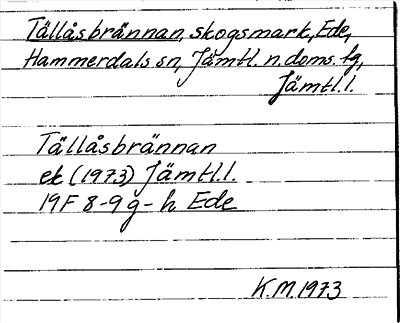 Tällåsbrännan, skogsmark, Ede,
Hammerdals sn, Jämtl. n. doms. tg,
Jämtl. l.
Tällåsbrännan
ek (1973) Jämtl. l.
19F 8-9 g-h Ede
K.M. 1973